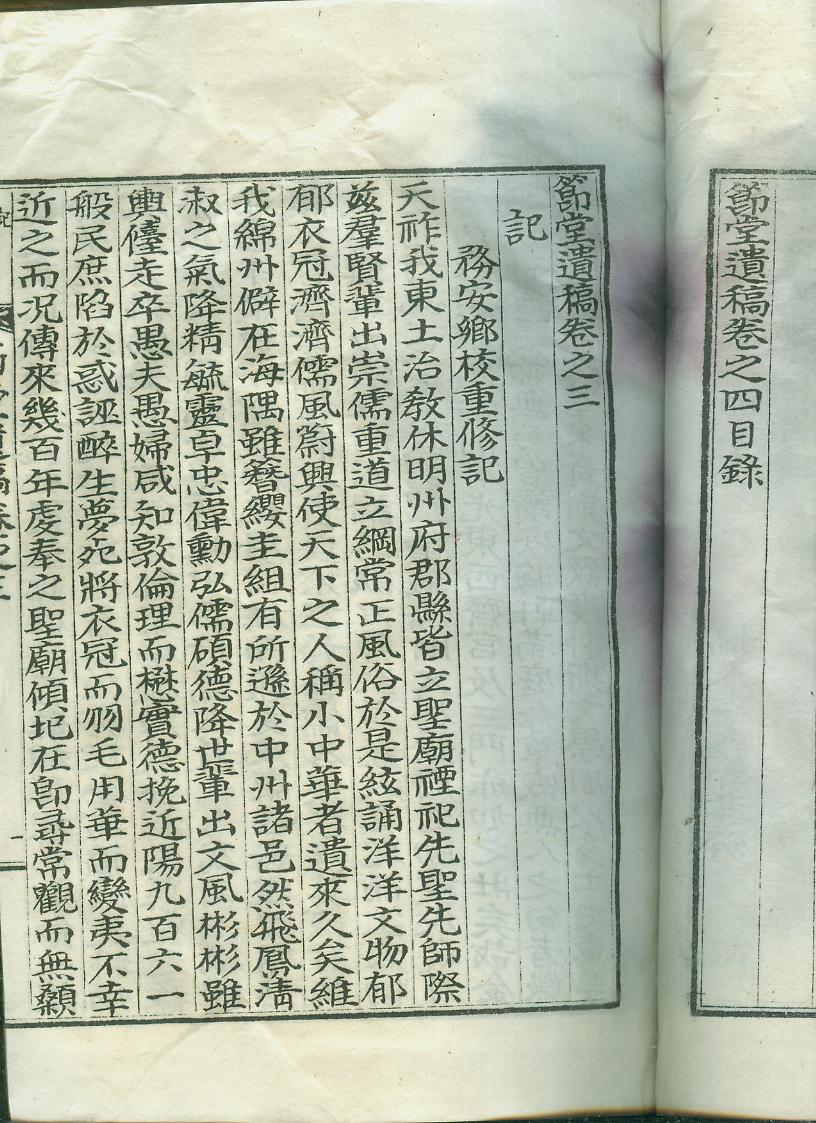 節堂遺稿卷之四目錄
節堂遺稿卷之三
記
務安鄉校重修記
天祚我東土治敎休明州府郡縣皆立聖廟禋祀先聖先師際
玆羣賢輩出崇儒重道立綱常正風俗於是絃誦洋洋文物郁
郁衣冠濟濟儒風蔚興使天下之人稱小中華者遺來久矣維
我綿州僻在海隅雖簪纓圭組有所遜於中州諸邑然飛鳳淸
淑之氣降精毓靈卓忠偉勳弘儒碩德降世輩出文風彬彬雖
輿儓走卒愚夫愚婦咸知敦倫理而懋實德挽近陽九百六一
般民庶陷於惑誣醉生夢死將衣冠而羽毛用華而變夷不幸
近之而況傳來幾百年虔奉之聖廟傾圮在卽尋常觀而無顙
記